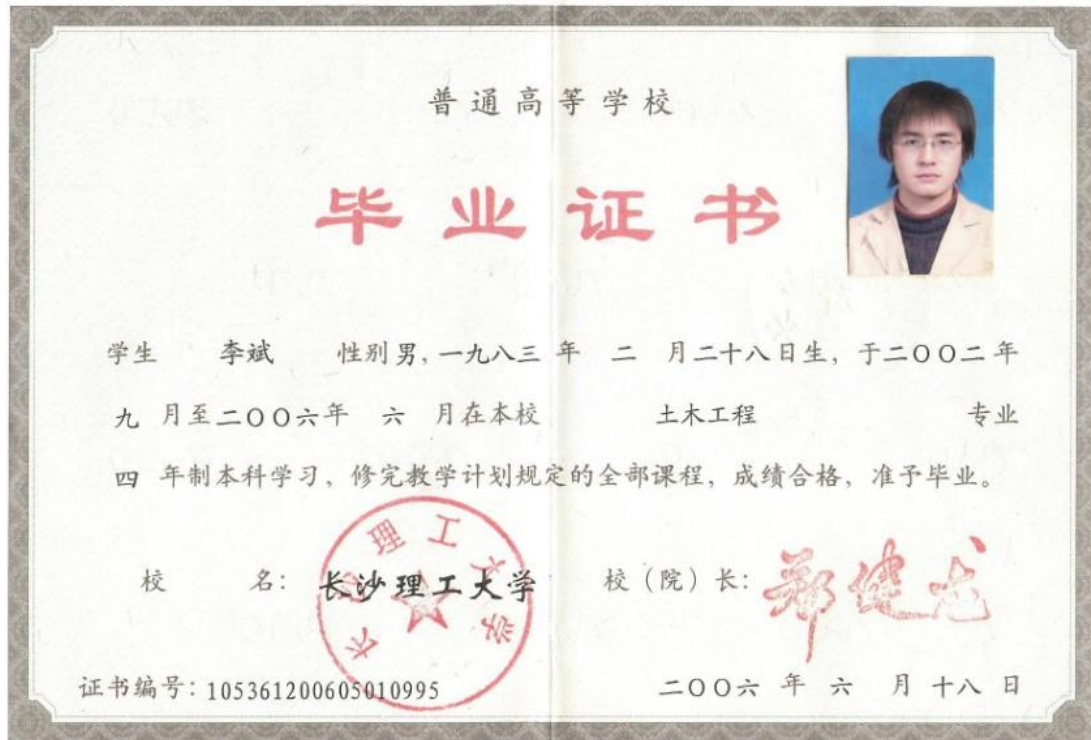 普通高等学校
毕业证书
学生 李斌 性别男,一九八三 年 二 月二十八日生，于二〇〇二年
九 月至二〇〇六年 六 月在本校 土木工程 专业
四 年制本科学习，修完教学计划规定的全部课程，成绩合格，准予毕业。
长沙理工大学
校 名： 长沙理工大学 校（院）长： 郑健龙
证书编号：105361200605010995 二〇〇六 年 六 月 十八 日